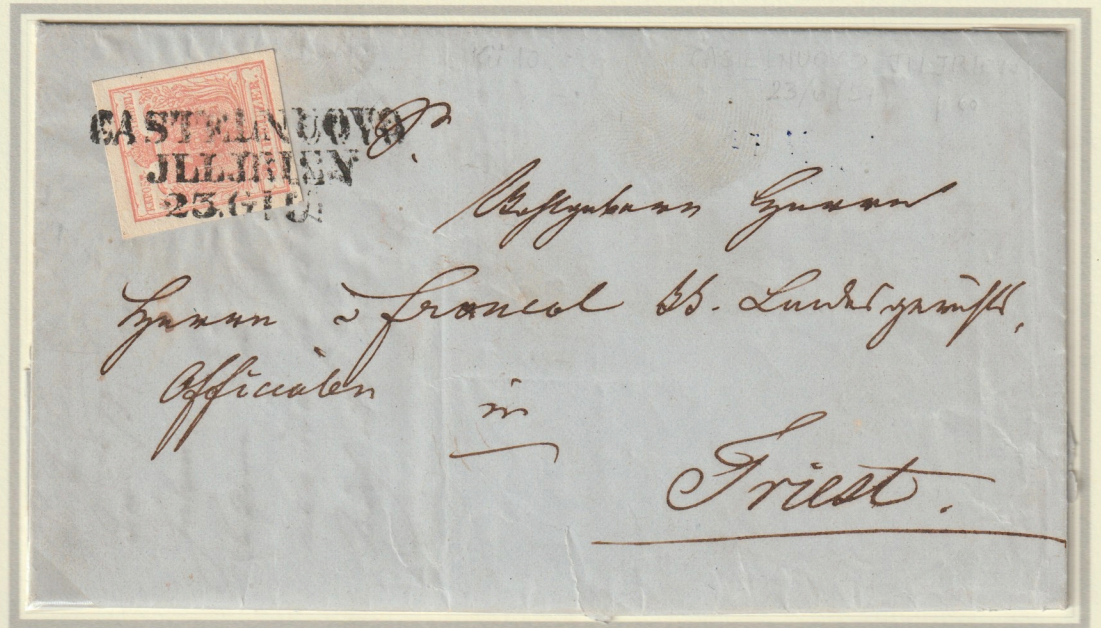 CASTELNUOVO
JLLIRIEN
23. GIU:
Wohlgeborn Herrn
Herrn v Francol kk. Landesgerichts,
Officialen
in
Triest.